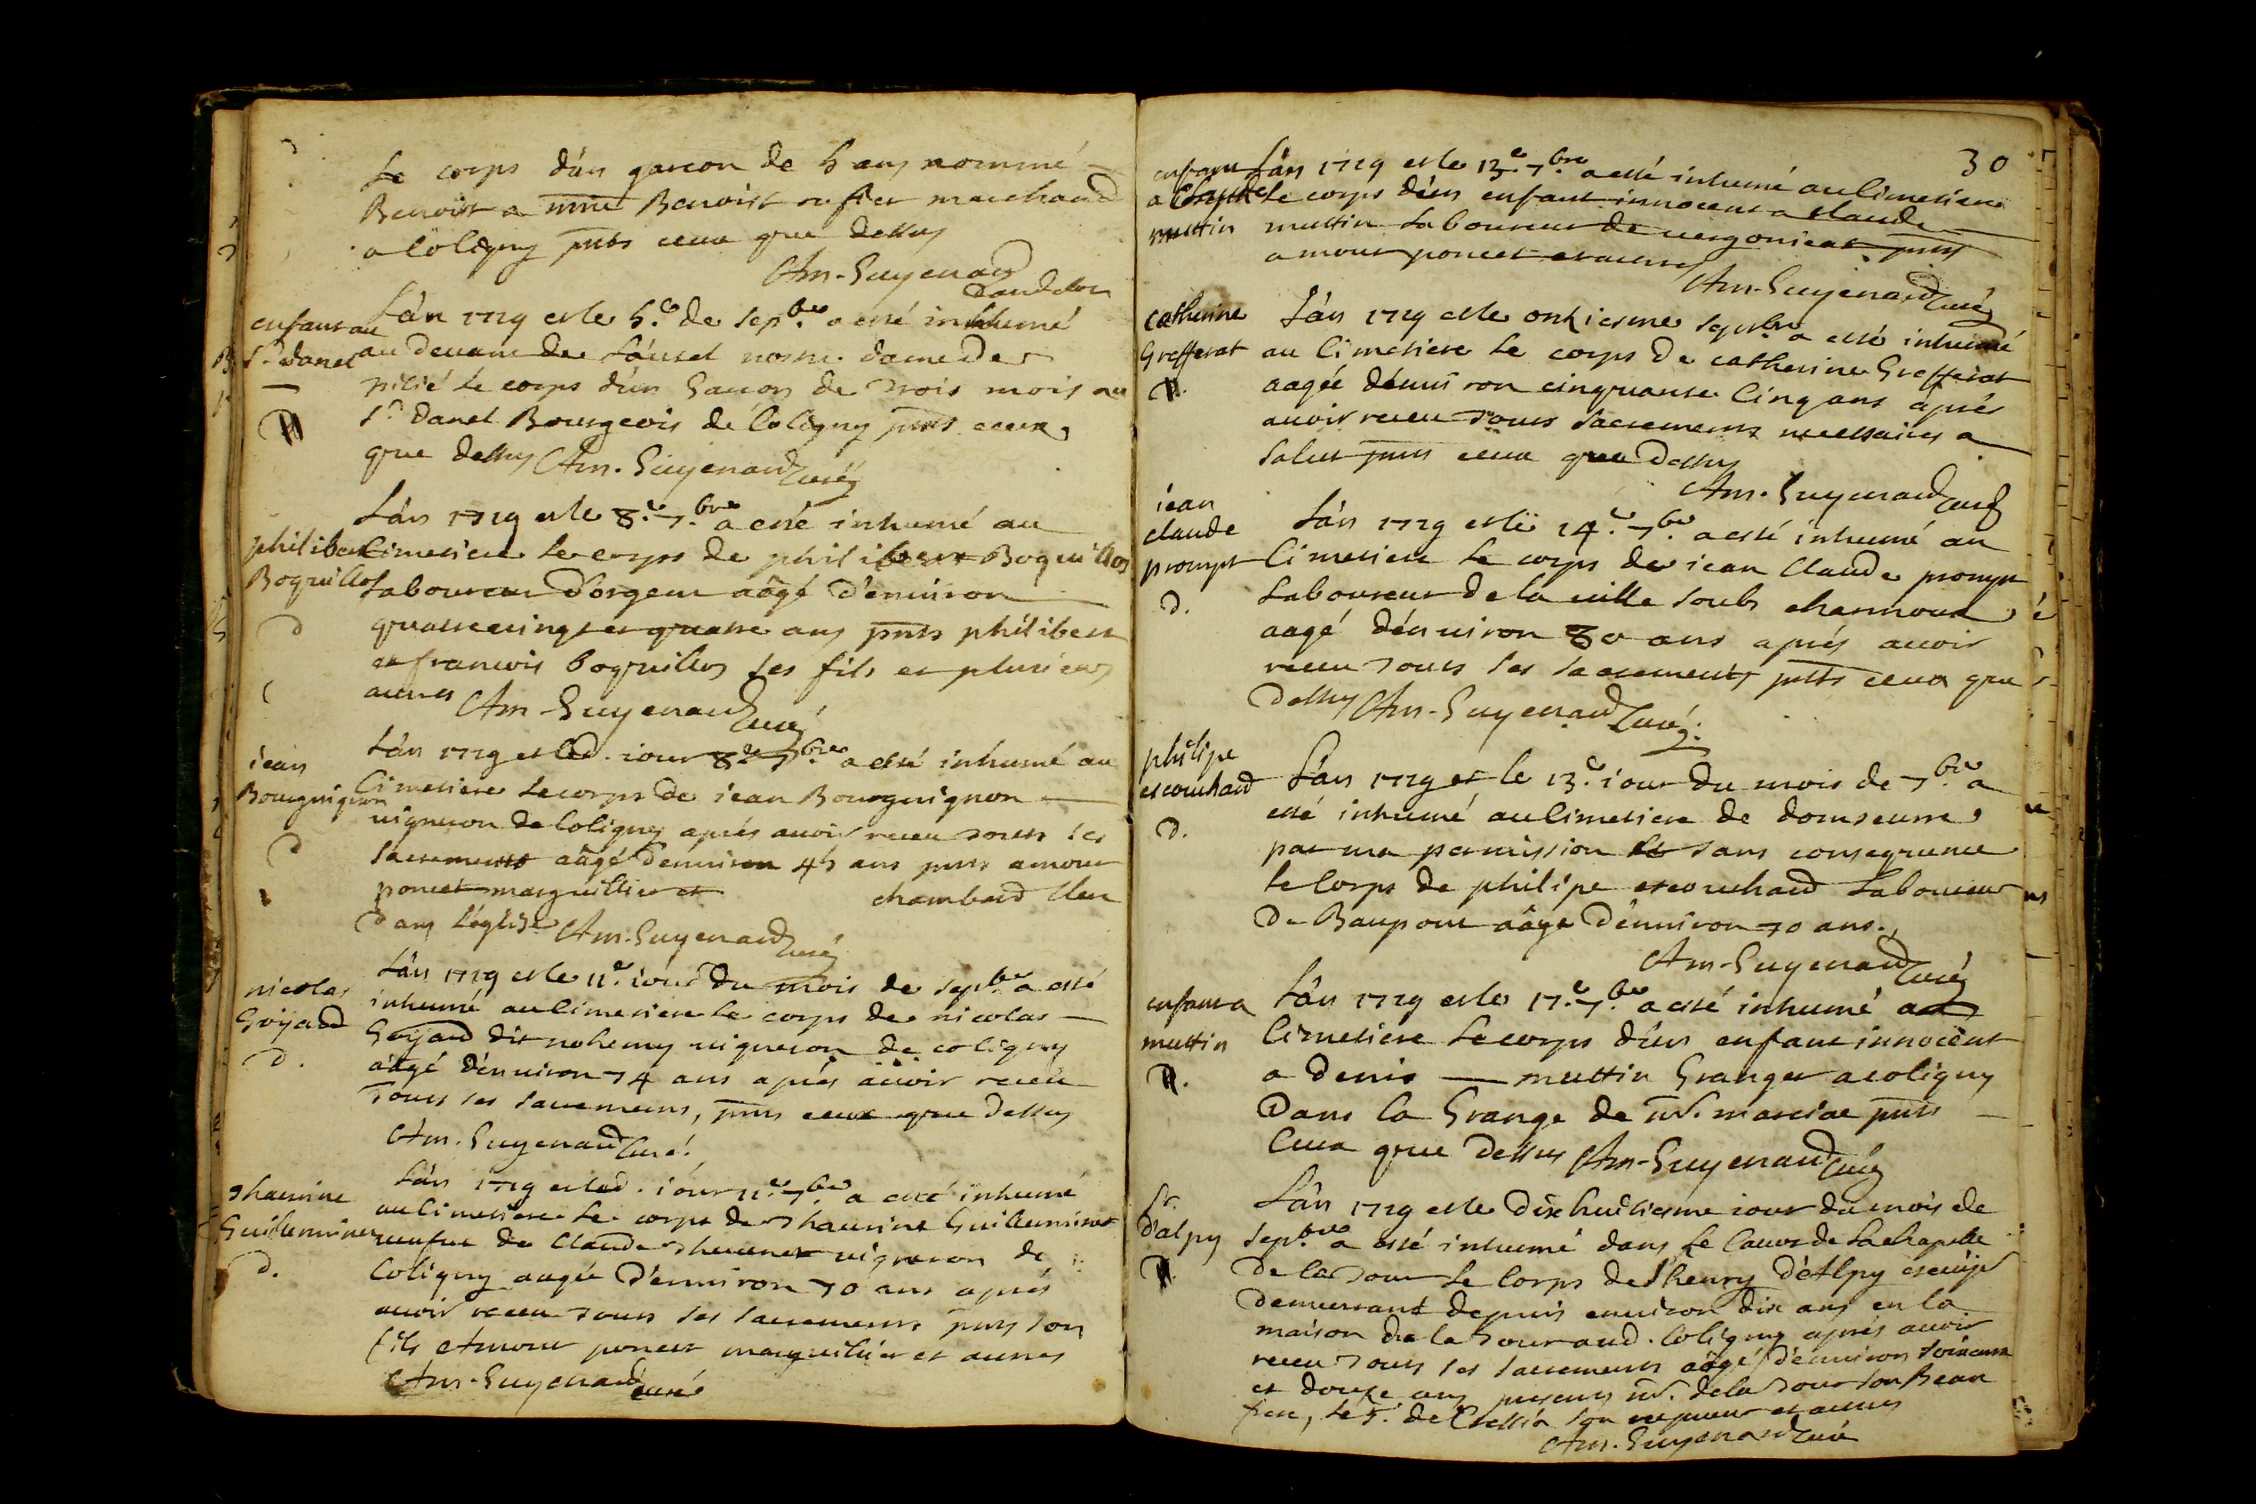 Le corps dún garcon de 5 ans nommé
Benoist a mre Benoist ruffier marchand
a Coligny pnts ceux que dessus
Am. Guyenard
enfant au
Sr danet
D
Lán 1719 et le 5.e de sepbre a esté inhumé
au devant de láutel nostre dame de
pitié le corps dún Garcon de trois mois au
Sr danet Bourgeois de Coligny pnts ceux
que dessus Am. Guyenard curé
philibert
Boquillos
D
Lán 1719 et le 8.e 7.bre a esté inhumé au
Cimetiere le corps de philibert Boquillos
Laboureur dórgeur aâgé dénuiron
quatrevingt et quatre ans pnts philibert
et francois boquillos ses fils et plusieurs
autres Am. Guyenard Curé
iean
Bourguignon
D
Lán 1719 et led. iour 8e 7.bre a esté inhumé au
Cimetiere le corps de iean Bourguignon
uigneron de Coligny aprés auoir receu tous les
sacrements aâgé dénuiron 45 ans pnts amour
poncet marguillier et chambard Clerc
dans léglise Am. Guyenard curé
nicolas
Goÿard
D.
Lán 1719 et le 11.e iour du mois de sepbre a esté
inhumé au Cimetiere le corps de nicolas
Goÿard dit nohemy uigneron de coligny
aâgé dénuiron 74 ans aprés auoir receu
Tous les sacremens, pnts ceux que dessus
Am. Guyenard Curé.
thaurine
Guilleminet
D.
Lán 1719 et led. iour 11.e 7.bre a esté inhumé
au Cimetiere le corps de thaurine Guilleminet
ueufue de Claude theuenet uigneron de
Coligny aagée dénuiron 70 ans aprés
auoir receu tous les sacrements pnts son
fils Amour poncet marguillier et autres
Am. Guyenard curé
30
enfant
a Claude
muttin
Lán 1719 et le 13.e 7.bre a esté inhumé au Cimetiere
le corps dún enfant innocent a Claude
muttin Laboureur de uergoniat pnts
amour poncet et autres
Am. Guyenard Curé
Catherine
Grefferat
D.
Lán 1719 et le onziesme sepbre a esté inhumé
au Cimetiere le corps de catherine Grefferat
aagée dénuiron cinquante Cinq ans aprés
auoir receu tous sacrements necessaires a
salut pnts ceux que dessus
Am. Guyenard curé
iean
claude
prompt
D.
Lán 1719 et le 14.e 7.bre a esté inhumé au
Cimetiere le corps de iean Claude prompt
Laboureur de la uille soubs charmoux
aagé dénuiron 80 ans aprés auoir
receu tous les sacrements pnts ceux que
dessus Am. Guyenard Curé.
philipe
escouchard
D.
Lán 1719 et le 13.e iour du mois de 7.bre a
esté inhumé au Cimetiere de domseurre
par ma permission sans consequence
le Corps de philipe escouchard Laboureur
de Baupont aâgé dénuiron 70 ans.
Am. Guyenard Curé
enfant a
muttin
D.
Lán 1719 et le 17.e 7.bre a esté inhumé au
Cimetiere le corps dún enfant innocent
a denis muttin Granger a coligny
dans la Grange de mr. marciat pnts
Ceux que dessus Am. Guyenard Curé
Sr.
dálpy
D.
Lán 1719 et le dix huitiesme iour du mois de
sepbre a esté inhumé dans le Caueau de la chapelle
de la tour le Corps de Sr henry dálpy escuÿer
demeurant depuis enuiron dix ans en la
maison de la tour aud. Coligny aprés auoir
receu tous les sacrements aâgé dénuiron soixante
et douze ans presents mr. de la tour son Beau
frere, le Sr. de Cressia son neueu et autres
Am. Guyenard Curé